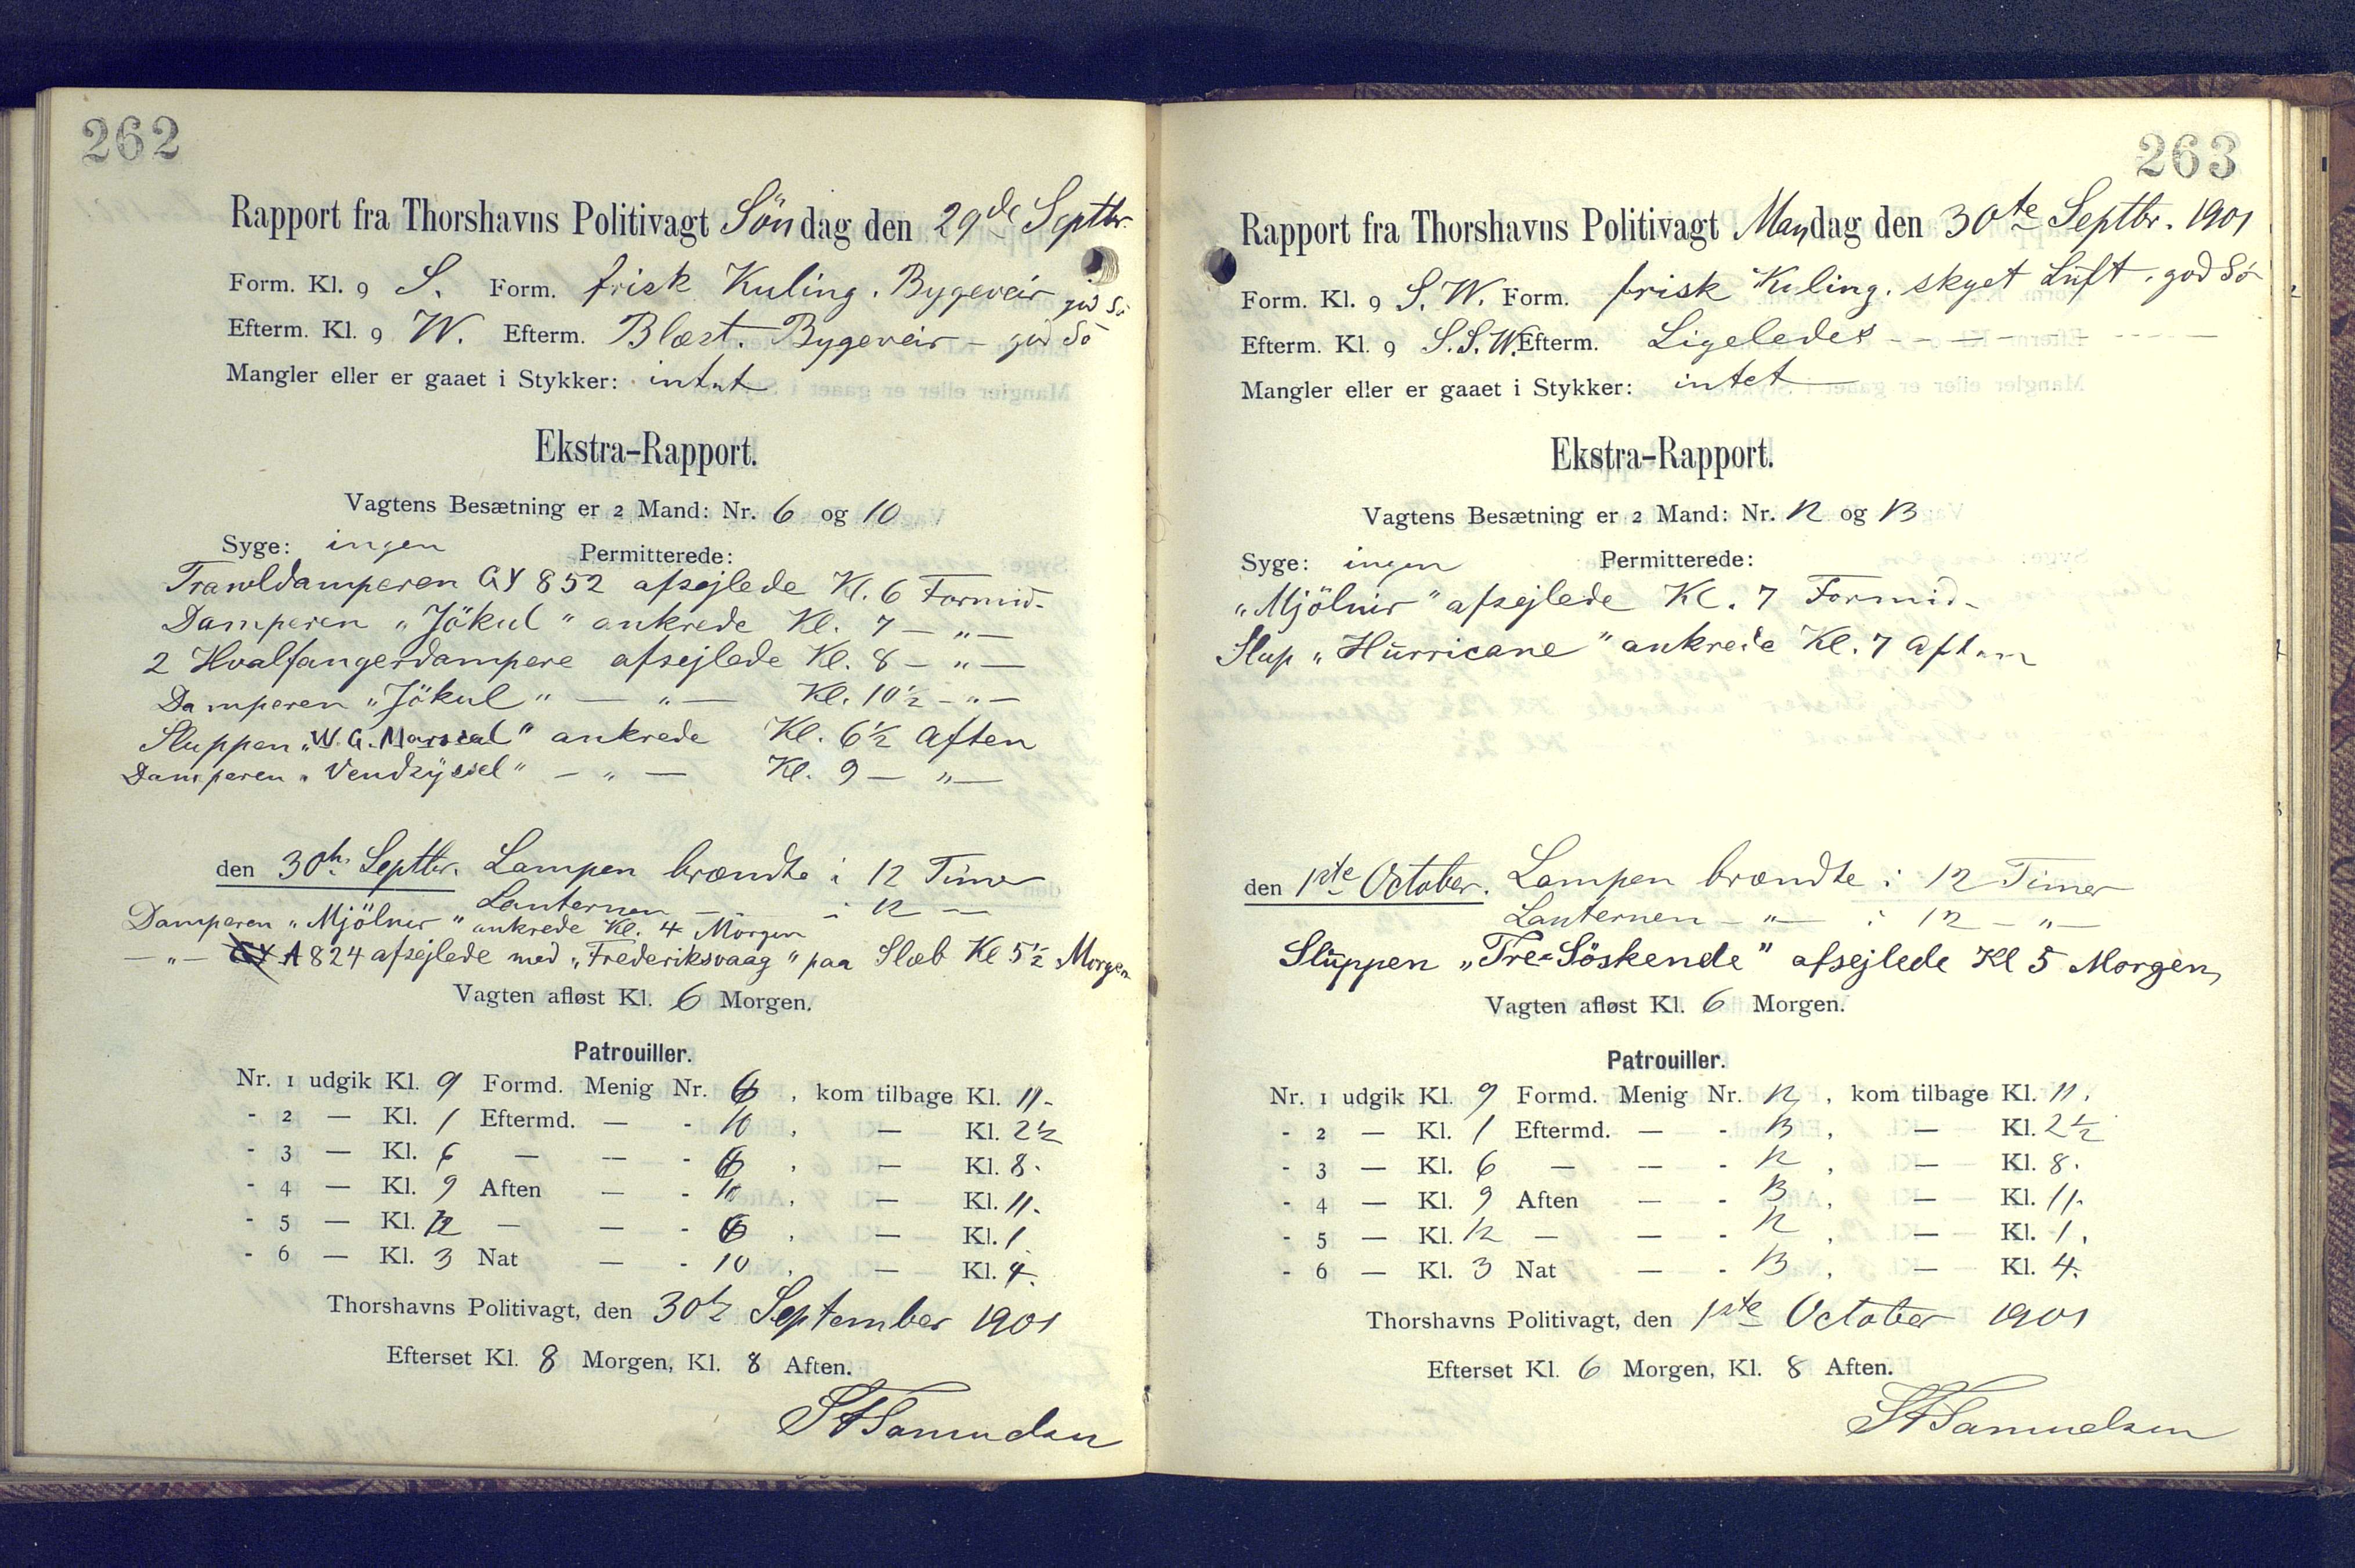 262
Rapport fra Thorshavns Politivagt Söndag den 29de Septbr.
Form. Kl. 9 S. Form. frisk Kuling. Bygeveir god Sö
Efterm. Kl. 9 W. Efterm. Blæst. Bygeveir - god Sö
Mangler eller er gaaet i Stykker: intet
Ekstra-Rapport.
Vagtens Besætning er 2 Mand: Nr. 6 og 10
Syge: ingen Permitterede:
Trawldamperen GY 852 afsejlede Kl. 6 Formid.
Damperen „Jökul" ankrede Kl. 7 — „ —
2 Hvalfangerdampere afsejlede Kl. 8 — „ —
Damperen „Jökul" — „ — Kl. 10½ - „ —
Sluppen „W. G. Marseal" ankrede Kl. 6½ Aften
Damperen „Vendsÿssel" — „ — Kl. 9 — „ —
den 30te Septbr. Lampen brændte i 12 Timer
Lanternen — „ — i 12 —
Damperen „Mjölnir" ankrede Kl. 4 Morgen
— „ — A 824 afsejlede med „Frederiksvaag" paa Slæb Kl 5½ Morgen
Vagten afløst Kl. 6 Morgen.
Patrouiller.
Nr. 1 udgik Kl. 9 Formd. Menig Nr. 6, kom tilbage Kl. 11.
- 2 — Kl. 1 Eftermd. — - 10, — Kl. 2½
- 3 — Kl. 6 — — - 6, — Kl. 8.
- 4 — Kl. 9 Aften — - 10, — Kl. 11.
- 5 — Kl. 12 — — - 6, — Kl. 1
- 6 — Kl. 3 Nat — - 10, — Kl. 4.
Thorshavns Politivagt, den 30te September 1901
Efterset Kl. 8 Morgen, Kl. 8 Aften.
SA Samuelsen
263
Rapport fra Thorshavns Politivagt Mandag den 30te Septbr. 1901
Form. Kl. 9 S. W. Form. frisk Kuling. skyet Luft. god Sö
Efterm. Kl. 9 S. S. W. Efterm. Ligeledes - - - - - -
Mangler eller er gaaet i Stykker: intet —
Ekstra-Rapport.
Vagtens Besætning er 2 Mand: Nr. 12 og 13
Syge: ingen Permitterede:
„Mjölnir" afsejlede Kl. 7 Formid-
Slup „Hurricane" ankrede Kl. 7 Aften
den 1ste October. Lampen brændte i 12 Timer
Lanternen - „ — i 12 - „ —
Sluppen „Tre-Söskende" afsejlede Kl 5 Morgen,
Vagten afløst Kl. 6 Morgen.
Patrouiller.
Nr. 1 udgik Kl. 9 Formd. Menig Nr. 12, kom tilbage Kl. 11.
- 2 — Kl. 1 Eftermd. — - 13, — Kl. 2½
- 3 — Kl. 6 — — - 12, — Kl. 8.
- 4 — Kl. 9 Aften — - 13, — Kl. 11.
- 5 — Kl. 12 — — - 12, — Kl. 1.
- 6 — Kl. 3 Nat — - 13, — Kl. 4.
Thorshavns Politivagt, den 1ste October 1901
Efterset Kl. 6 Morgen, Kl. 8 Aften.
SA Samuelsen